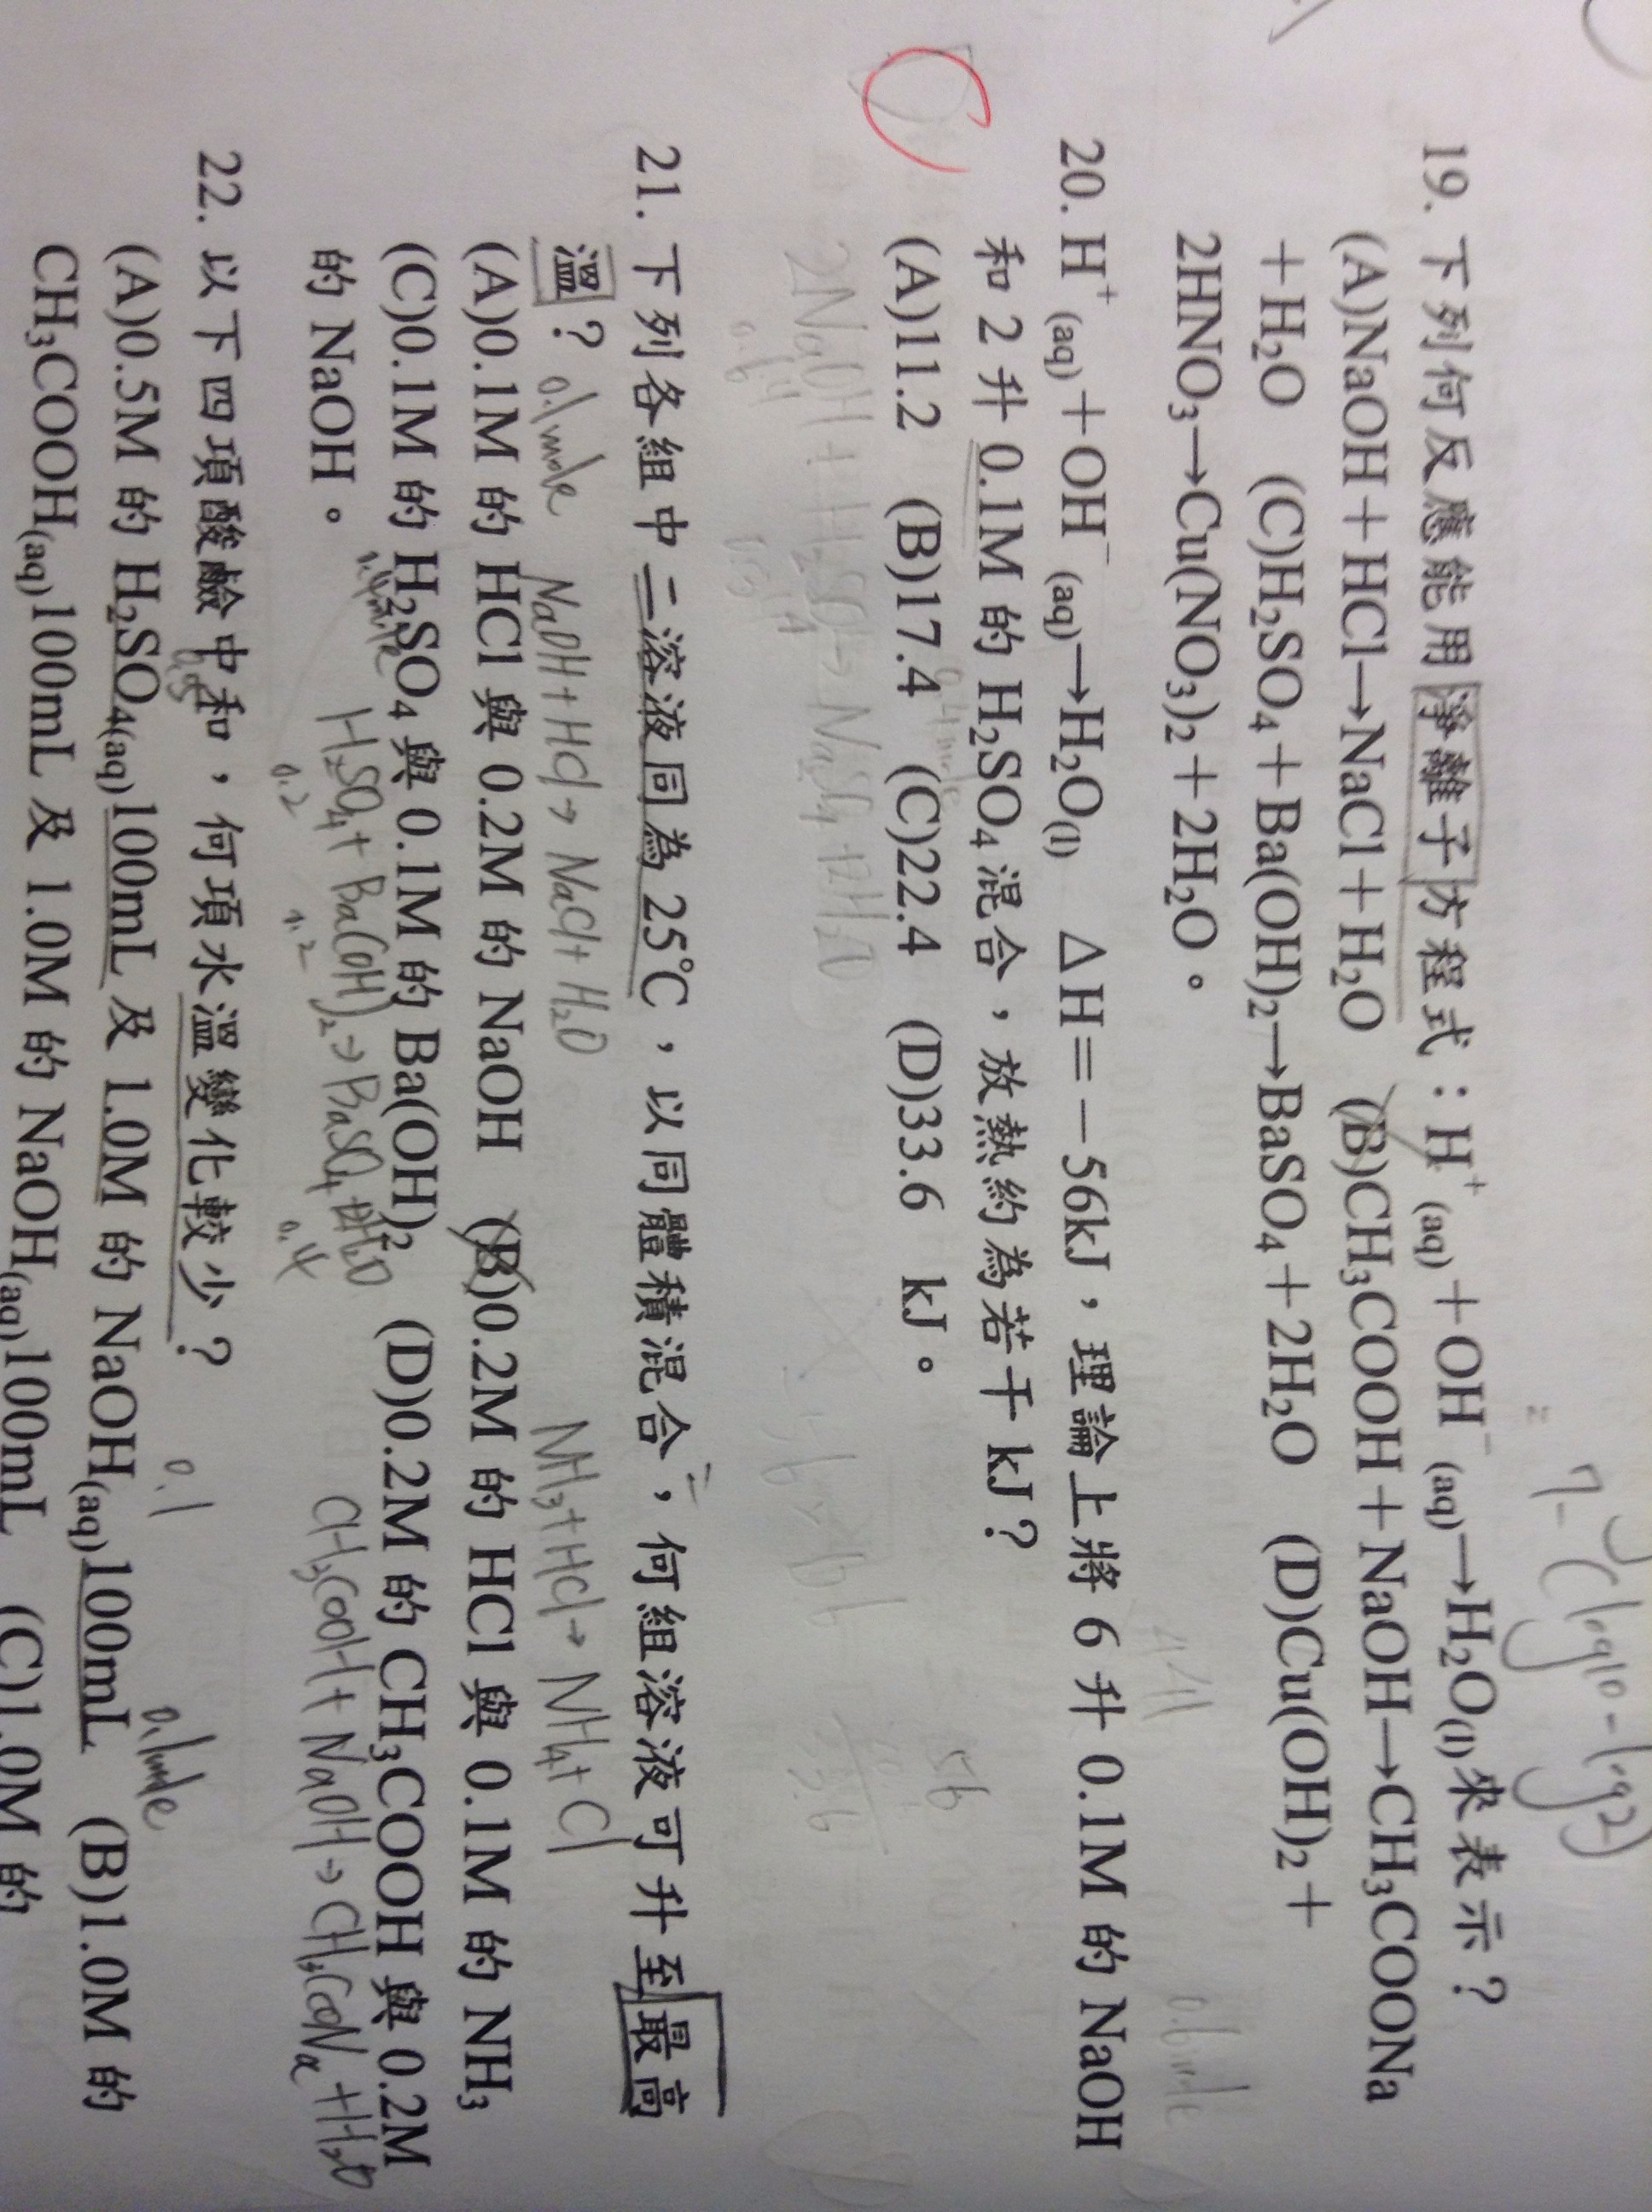 7-(log10-log2)
19. 下列何反應能用淨離子方程式：H⁺(aq)＋OH⁻(aq)→H₂O(l)來表示？
(A)NaOH＋HCl→NaCl＋H₂O (B)CH₃COOH＋NaOH→CH₃COONa
＋H₂O (C)H₂SO₄＋Ba(OH)₂→BaSO₄＋2H₂O (D)Cu(OH)₂＋
2HNO₃→Cu(NO₃)₂＋2H₂O。
0.6mole
20. H⁺(aq)＋OH⁻(aq)→H₂O(l) △H＝－56kJ，理論上將 6 升 0.1M 的 NaOH
和 2 升 0.1M 的 H₂SO₄ 混合，放熱約為若干 kJ？
56
(A)11.2 (B)17.4 (C)22.4 (D)33.6 kJ。
2NaOH+H₂SO₄→Na₂SO₄+2H₂O
21. 下列各組中二溶液同為 25℃，以同體積混合，何組溶液可升至最高
溫？ 0.1mole NaOH+HCl→NaCl+H₂O NH₃+HCl→NH₄+Cl
(A)0.1M 的 HCl 與 0.2M 的 NaOH (B)0.2M 的 HCl 與 0.1M 的 NH₃
(C)0.1M 的 H₂SO₄ 與 0.1M 的 Ba(OH)₂ (D)0.2M 的 CH₃COOH 與 0.2M
的 NaOH。 H₂SO₄+Ba(OH)₂→BaSO₄+2H₂O CH₃COOH+NaOH→CH₃COONa+H₂O
0.2 0.2 0.4
22. 以下四項酸鹼中和，何項水溫變化較少？
0.1 0.1mole
(A)0.5M 的 H₂SO₄(aq)100mL 及 1.0M 的 NaOH(aq)100mL (B)1.0M 的
CH₃COOH(aq)100mL 及 1.0M 的 NaOH(aq)100mL (C)1.0M 的